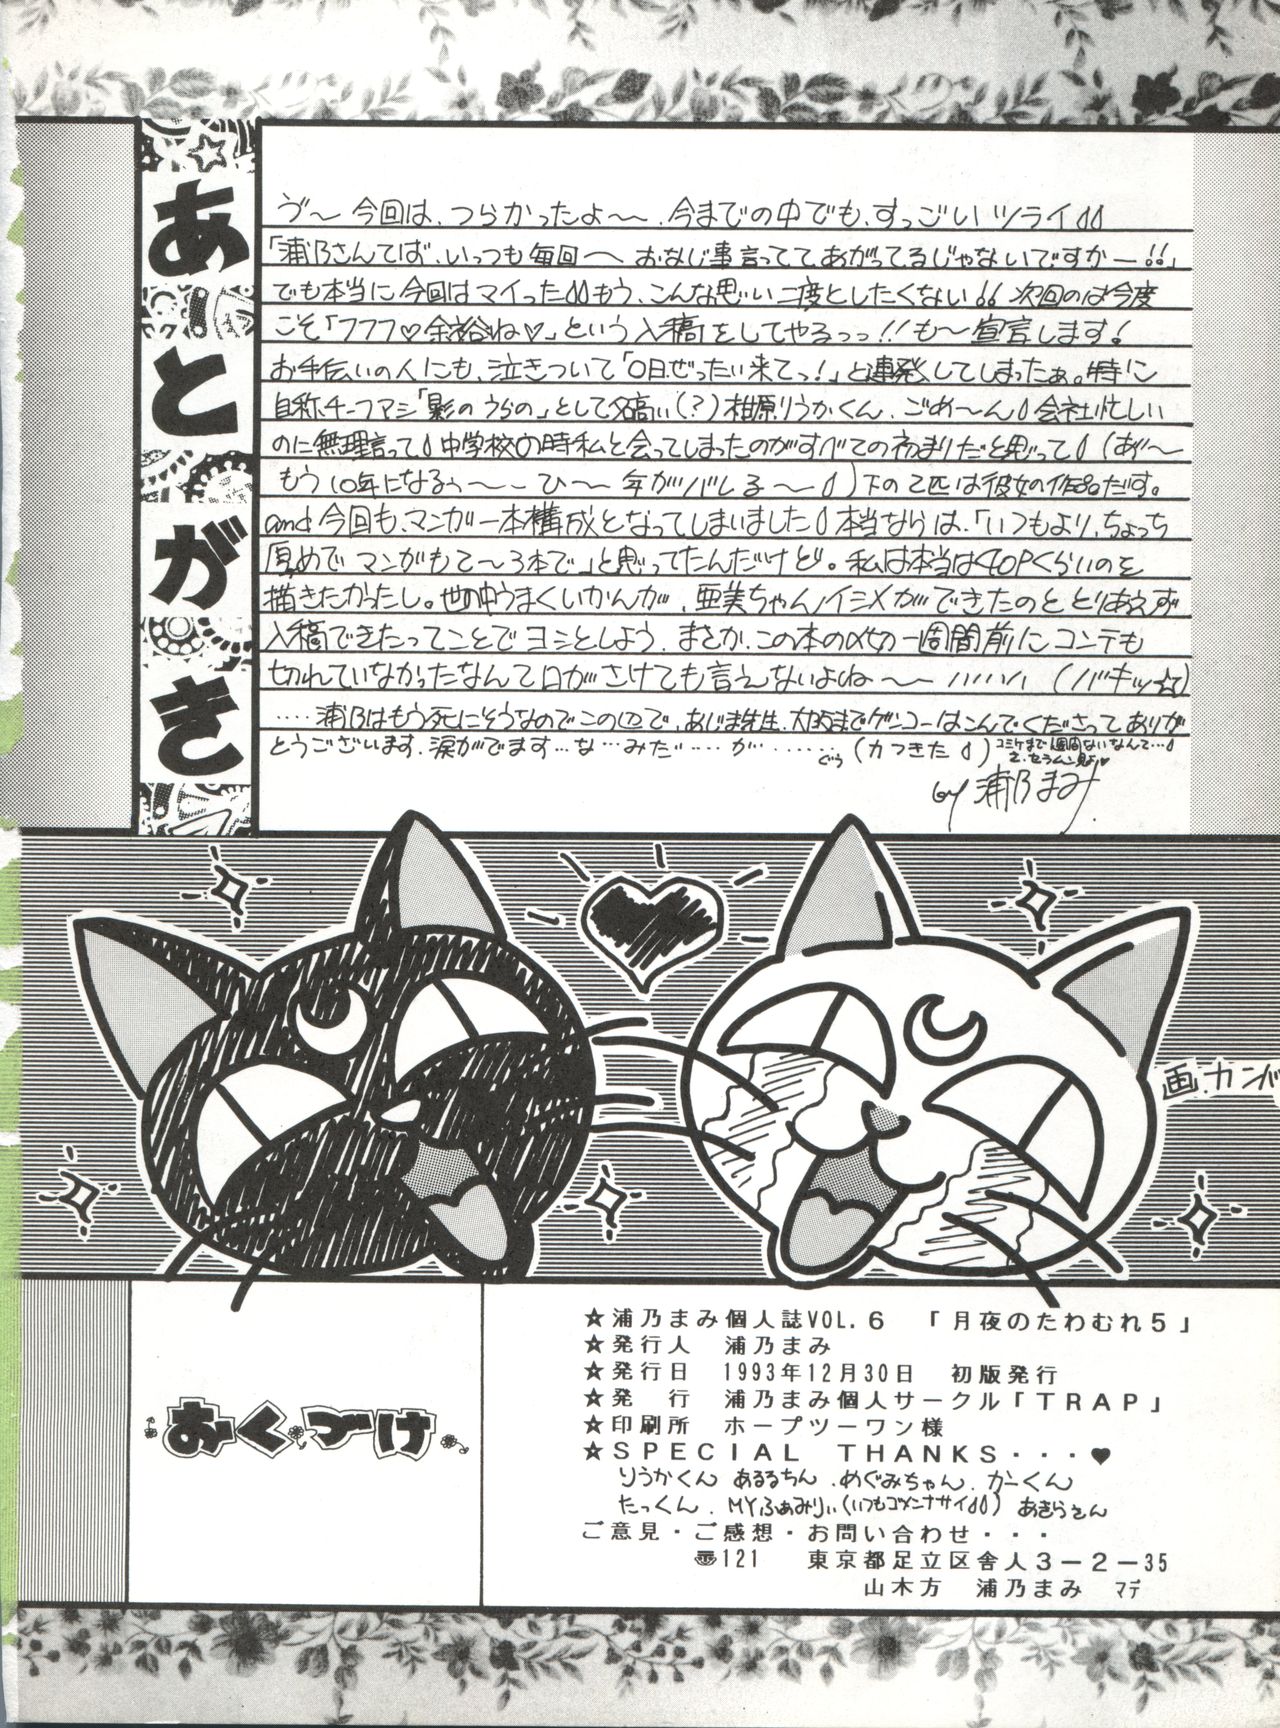 あとがき
ヴ～今回は、つらかったよ～～、今までの中でも、すっごいツライ
「浦乃さんてば、いっつも毎回～おなじ事言っててあがってるじゃないですかー!!」
でも本当に今回はマイった もう、こんな思い二度としたくない!! 次回のは今度
こそ「フフフ♡余裕ね♡」という入稿をしてやるっっ!!も～宣言します!
お手伝いの人にも、泣きついて「〇日ぜったい来てっ!」と連発してしまったぁ。特に
自称チーフアシ「影のうらの」として名高い(?)相原りうかくん、ごめ～ん 会社忙しい
のに無理言って 中学校の時私と会ってしまったのがすべての初まりだと思って (あ″～
もう10年になるぅ～～ ひ～ 年がバレる～)下の2匹は彼女の作品だす。
and 今回も、マンガ一本構成となってしまいました 本当ならば、「いつもより、ちょっち
厚めで マンガもて～3本で」と思ってたんだけど。私は本当は40Pくらいのを
描きたかったし。世の中うまくいかんが、亜美ちゃんイジメができたのととりあえず
入稿できたってことでヨシとしよう、まさか、この本の〆切の一週間前にコンテも
切れていなかったなんて口がさけても言えないよね～～ハハハ (バキッ☆)
‥‥浦乃はもう死にそうなのでこの辺で、あじま先生、大阪までゲンコーはこんでくださってありが
とうございます、涙がでます…な…みだ‥…が…‥‥‥ぐぅ (カつきた)
コミケまで1週間ないなんて…
by 浦乃まみ
画.カンガ
おくづけ
★浦乃まみ個人誌VOL.6 「月夜のたわむれ5」
★発行人 浦乃まみ
★発行日 1993年12月30日 初版発行
★発 行 浦乃まみ個人サークル「TRAP」
★印刷所 ホープツーワン様
★SPECIAL THANKS・・・♥
りうかくん あるるちん、めぐみちゃん、かーくん
たっくん、MYふぁみりぃ(いつもゴメンナサイ) あきらさん
ご意見・ご感想・お問い合わせ・・・
〠121 東京都足立区舎人3-2-35
山木方 浦乃まみ マデ